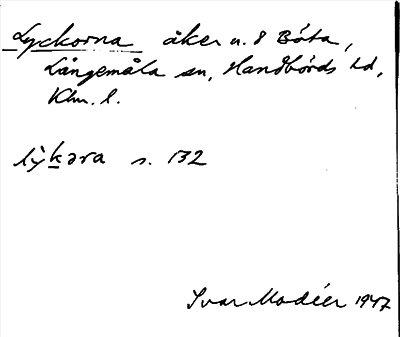 Lyckorna åker n. 8 Bôta,
Långemåla sn, Handbörds hd,
Klm. l.
lỳkəra s. 132
Ivar Modéer 1947